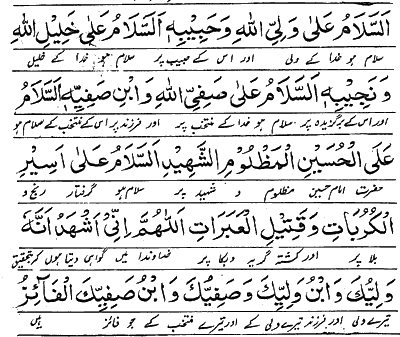 اَلسَّلَامُ عَلٰی وَلِیِّ اللهِ وَحَبِیْبِهٖ اَلسَّلَامُ عَلٰی خَلِیْلِ اللهِ
سلام ہو خدا کے ولی اور اس کے حبیب پر سلام ہو خدا کے خلیل
وَ نَجِیْبِهٖ اَلسَّلَامُ عَلٰی صَفِیِّ اللهِ وَابْنِ صَفِیِّهٖ اَلسَّلَامُ
اور اس کے برگزیدہ پر سلام ہو خدا کے منتخب پر اور فرزند پر اس کے منتخب کے سلام ہو
عَلَی الْحُسَیْنِ الْمَظْلُوْمِ الشَّهِیْدِ اَلسَّلَامُ عَلٰی اَسِیْرِ
حضرت امام حسین مظلوم و شہید پر سلام ہو گرفتار رنج و
الْکُرُبَاتِ وَ قَتِیْلِ الْعَبَرَاتِ اَللّٰهُمَّ اِنِّیْ اَشْهَدُ اَنَّهٗ
بلا پر اور کشتہ گریہ و بکا پر خداوندا میں گواہی دیتا ہوں کہ بتحقیق
وَلِیُّكَ وَابْنُ وَلِیِّكَ وَصَفِیُّكَ وَابْنُ صَفِیِّكَ الْفَآئِزُ
تیرے ولی اور فرزند تیرے ولی کے اور تیرے منتخب کے جو فائز ہیں